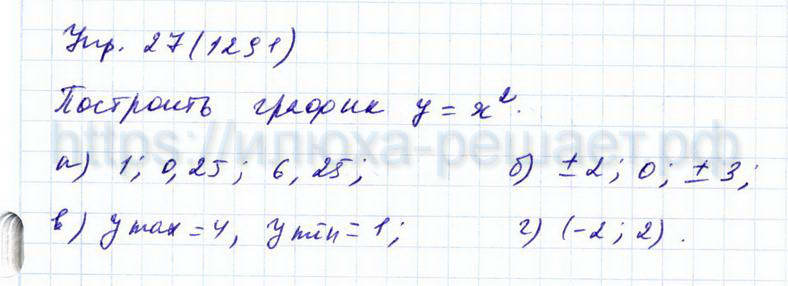 Упр. 27(1291)
Построить график y = x².
https://илюха-решает.рф
а) 1; 0,25; 6,25; б) ±2; 0; ±3;
в) y max = 4, y min = 1; г) (-2; 2).